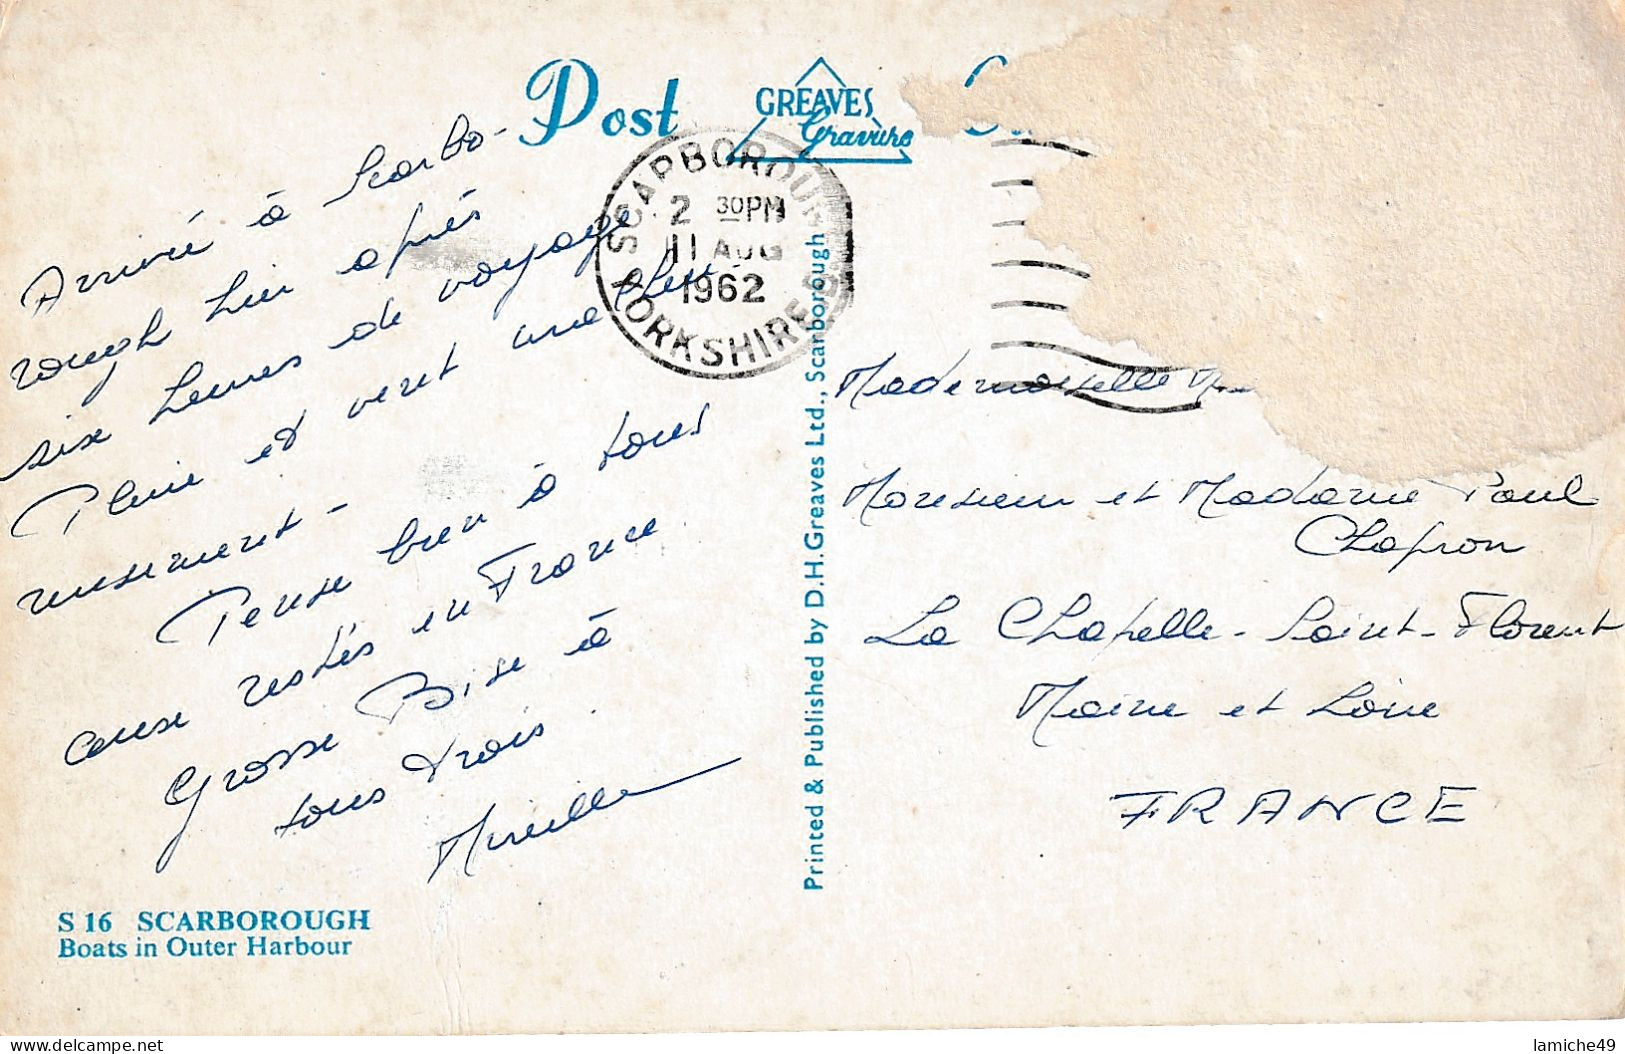 Post
GREAVES
Gravure
SCARBOROUGH
2 30PM
11 AUG
1962
YORKSHIRE
Arrivée à Scarbo-
rough hier après
six heures de voyage
Pluie et vent
reusement -
Pense bien à tous
ceux restés en France
Grosse Bise à
tous trois.
Mireille
S 16 SCARBOROUGH
Boats in Outer Harbour
Printed & Published by D.H.Greaves Ltd., Scarborough
Mademoiselle
Monsieur et Madame Paul
Chapron
La Chapelle-Saint-Florent
Maine et Loire
FRANCE
lamiche49